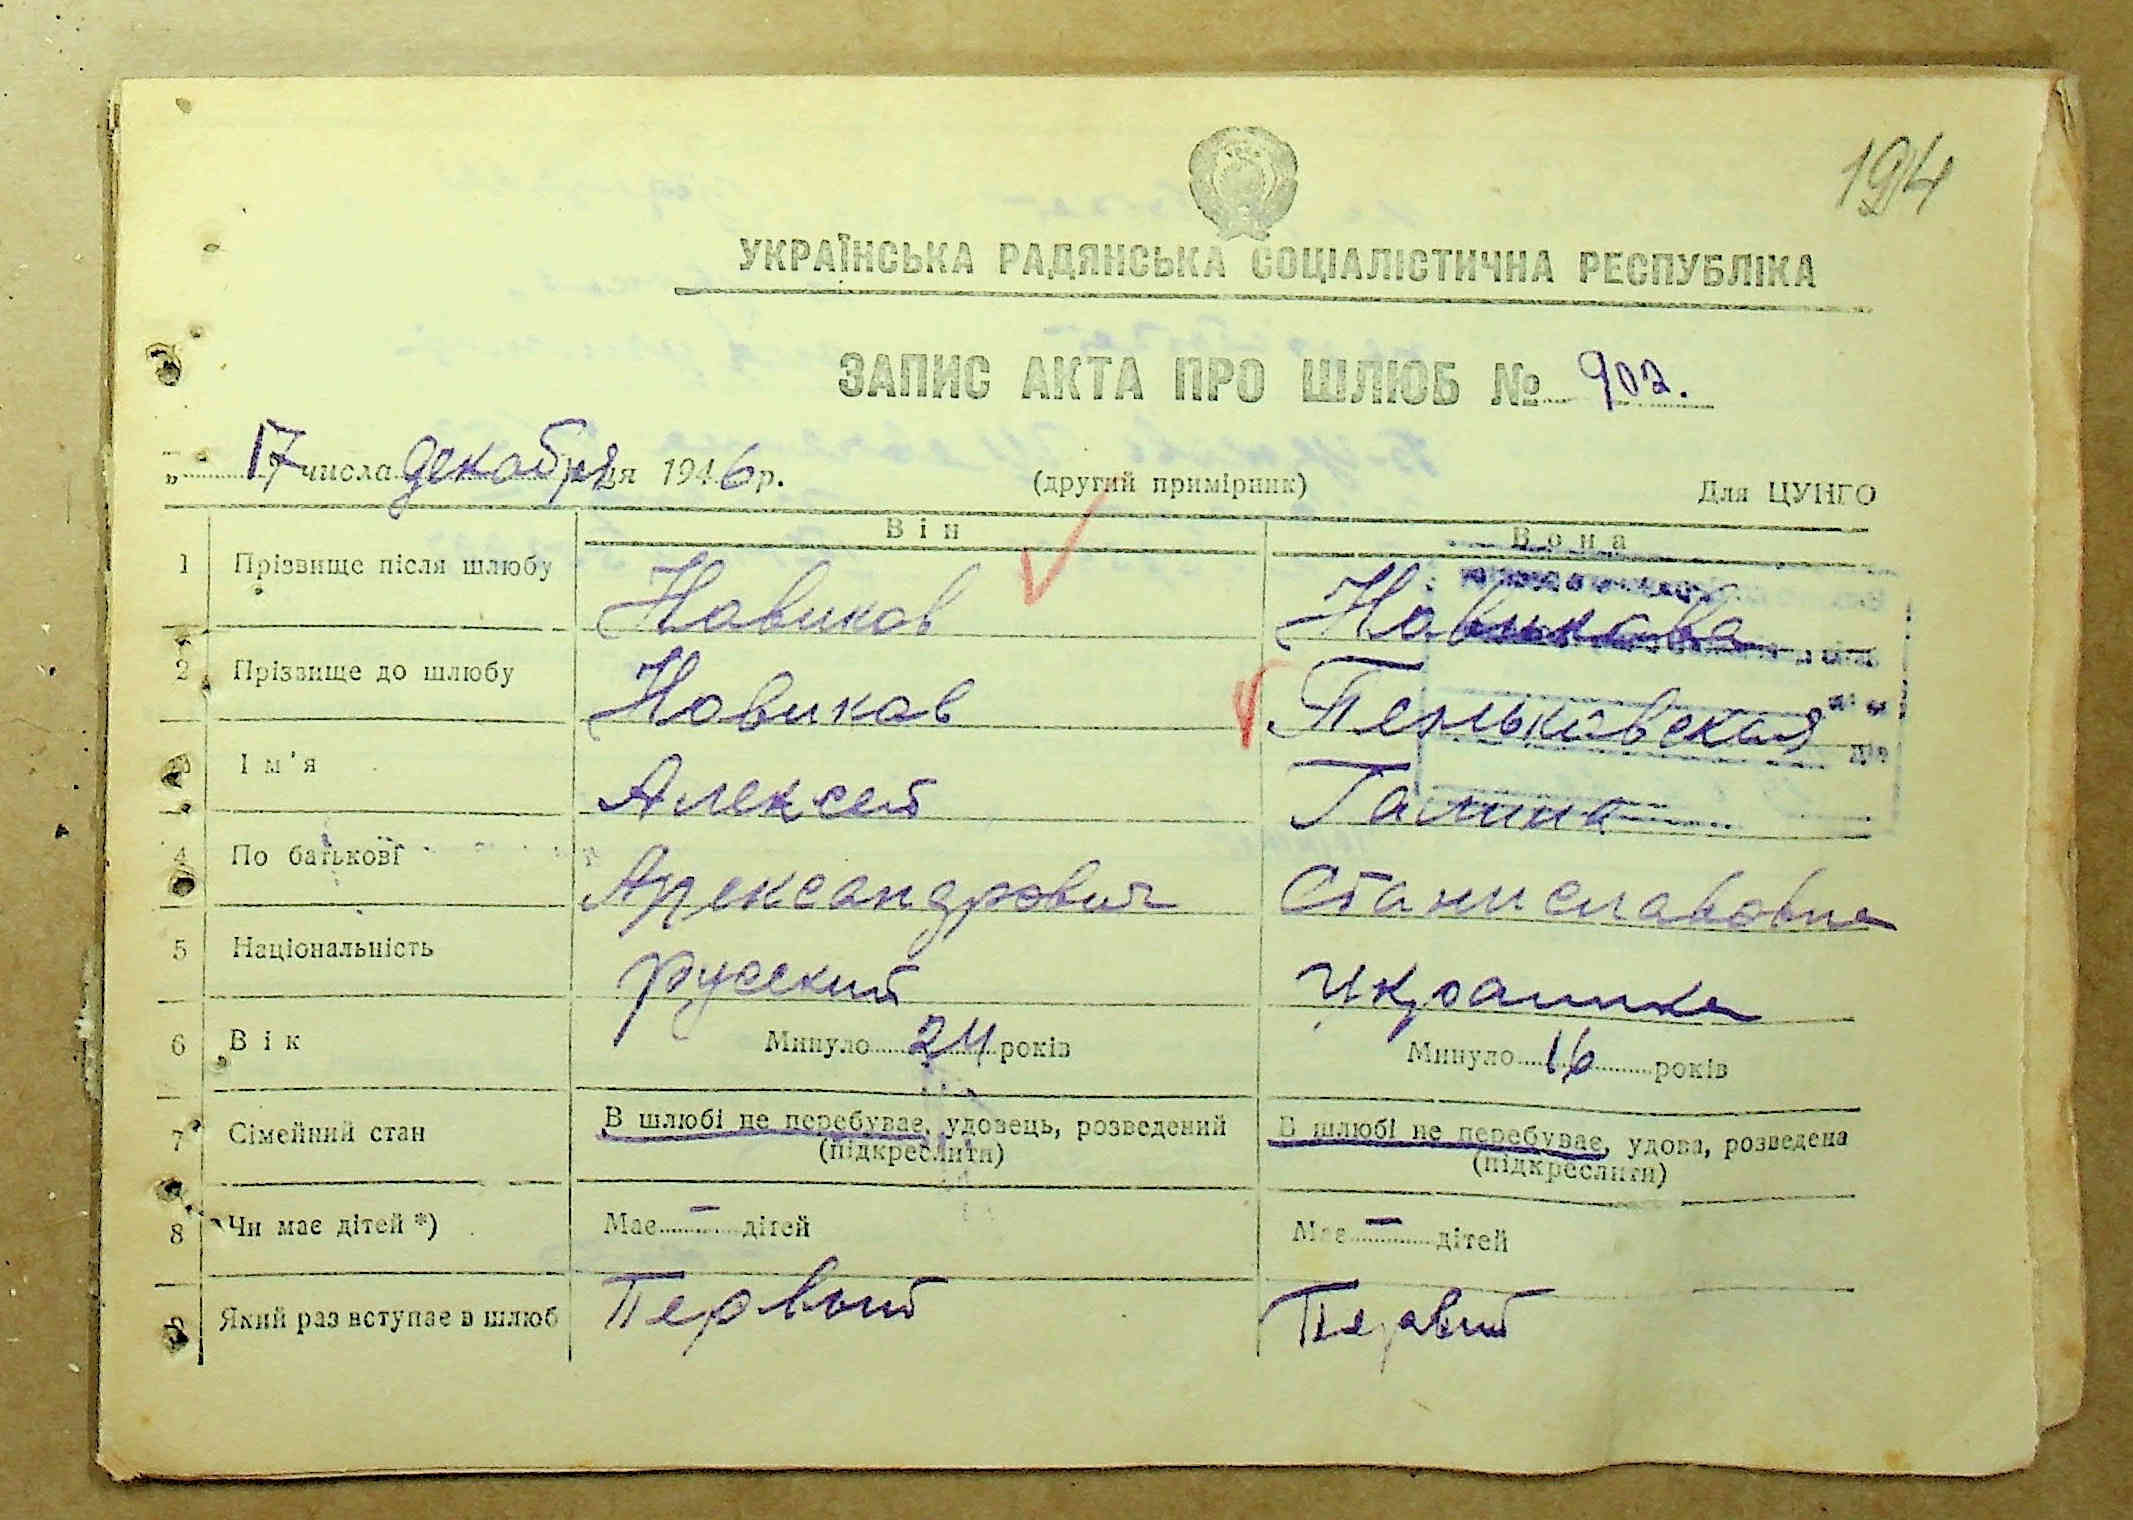 194
УКРАЇНСЬКА РАДЯНСЬКА СОЦІАЛІСТИЧНА РЕСПУБЛІКА
ЗАПИС АКТА ПРО ШЛЮБ № 902.
„ 17 числа декабря ця 1946 р. (другий примірник) Для ЦУНГО
Він Вона
1 Прізвище після шлюбу Новиков Новикова
2 Прізвище до шлюбу Новиков Пеньковская
3 Ім'я Алексей Галина
4 По батькові Александрович Станиславовна
5 Національність русский Украинка
6 Вік Минуло 24 років Минуло 16 років
7 Сімейний стан В шлюбі не перебуває, удовець, розведений В шлюбі не перебуває, удова, розведена
(підкреслити) (підкреслити)
8 Чи має дітей *) Має — дітей Має — дітей
9 Який раз вступає в шлюб Первый Первый